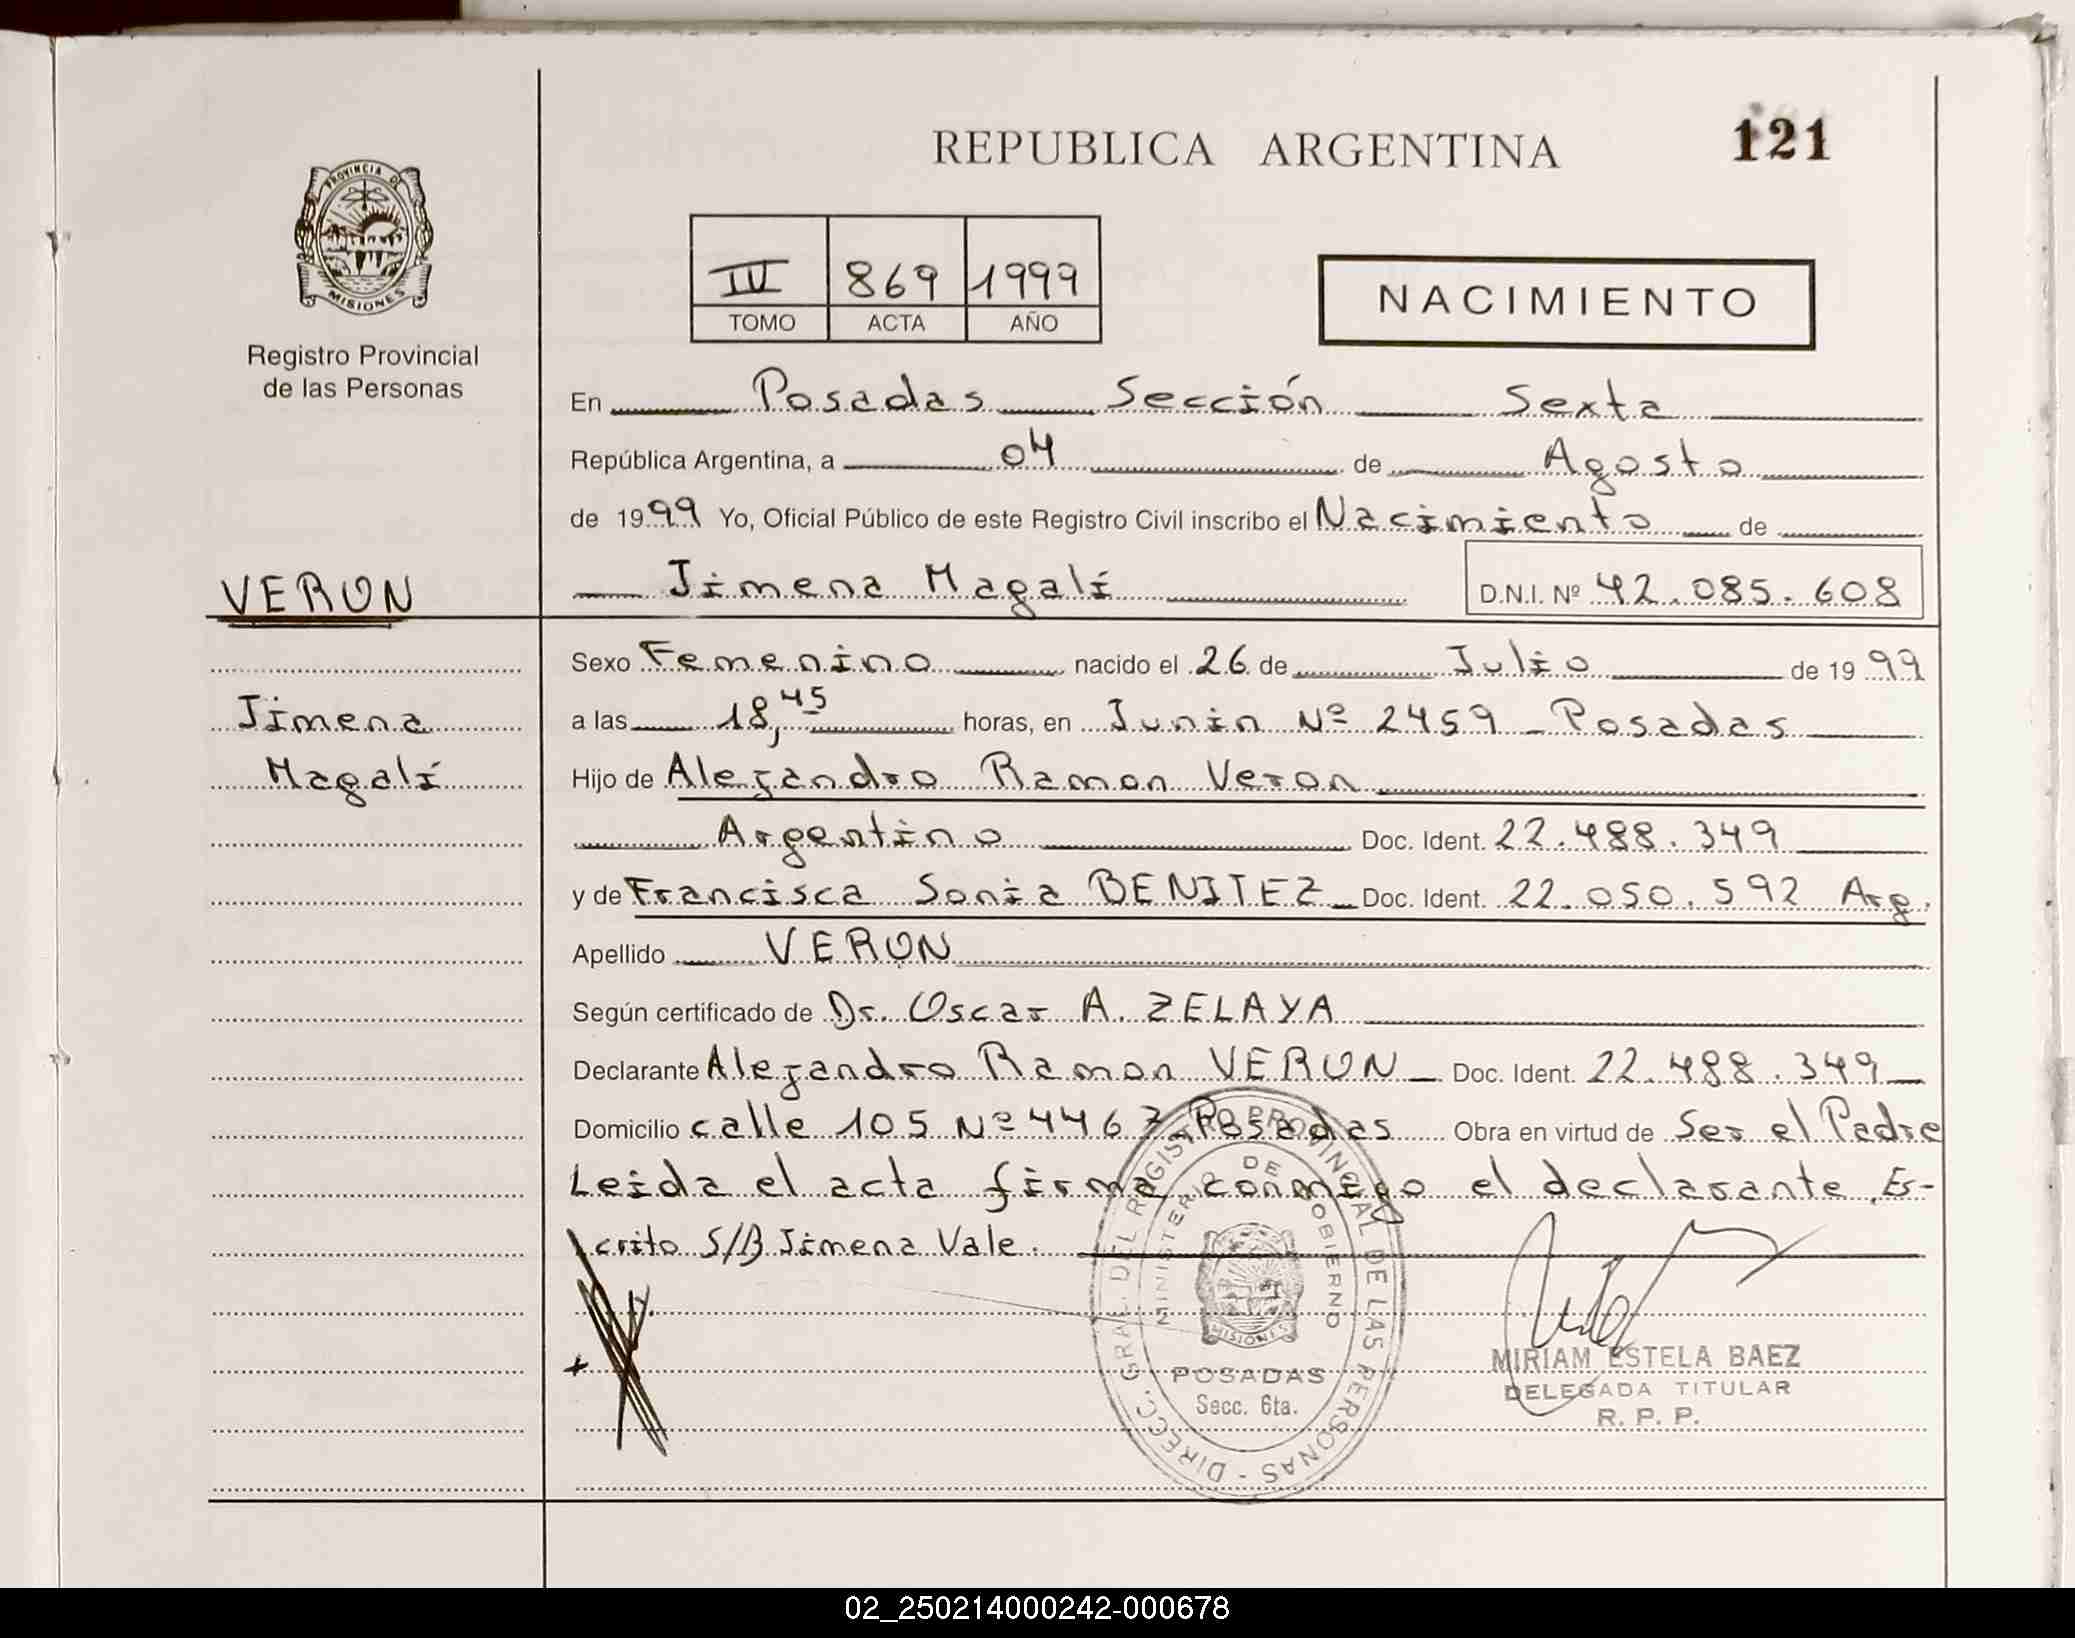 REPUBLICA ARGENTINA
121
PROVINCIA DE
MISIONES
Registro Provincial
de las Personas
IV 869 1999
TOMO ACTA AÑO
NACIMIENTO
En Posadas Sección Sexta
República Argentina, a 04 de Agosto
de 1999 Yo, Oficial Público de este Registro Civil inscribo el Nacimiento de
VERON
Jimena Magalí D.N.I. Nº 42.085.608
Sexo Femenino nacido el 26 de Julio de 1999
Jimena
a las 18,45 horas, en Junin Nº 2459 - Posadas
Magalí
Hijo de Alejandro Ramon Veron
Argentino Doc. Ident. 22.488.349
y de Francisca Sonia BENITEZ Doc. Ident. 22.050.592 Arg.
Apellido VERON
Según certificado de Dr. Oscar A. ZELAYA
Declarante Alejandro Ramon VERON Doc. Ident. 22.488.349
Domicilio calle 105 Nº 4467 - Posadas Obra en virtud de Ser el Padre
Leida el acta firma conmigo el declarante. Es-
crito S/B Jimena Vale.
DIRECC. GRAL. DEL REGISTRO PROVINCIAL DE LAS PERSONAS -
MINISTERIO DE GOBIERNO
MISIONES
POSADAS
Secc. 6ta.
MIRIAM ESTELA BAEZ
DELEGADA TITULAR
R. P. P.
02_250214000242-000678